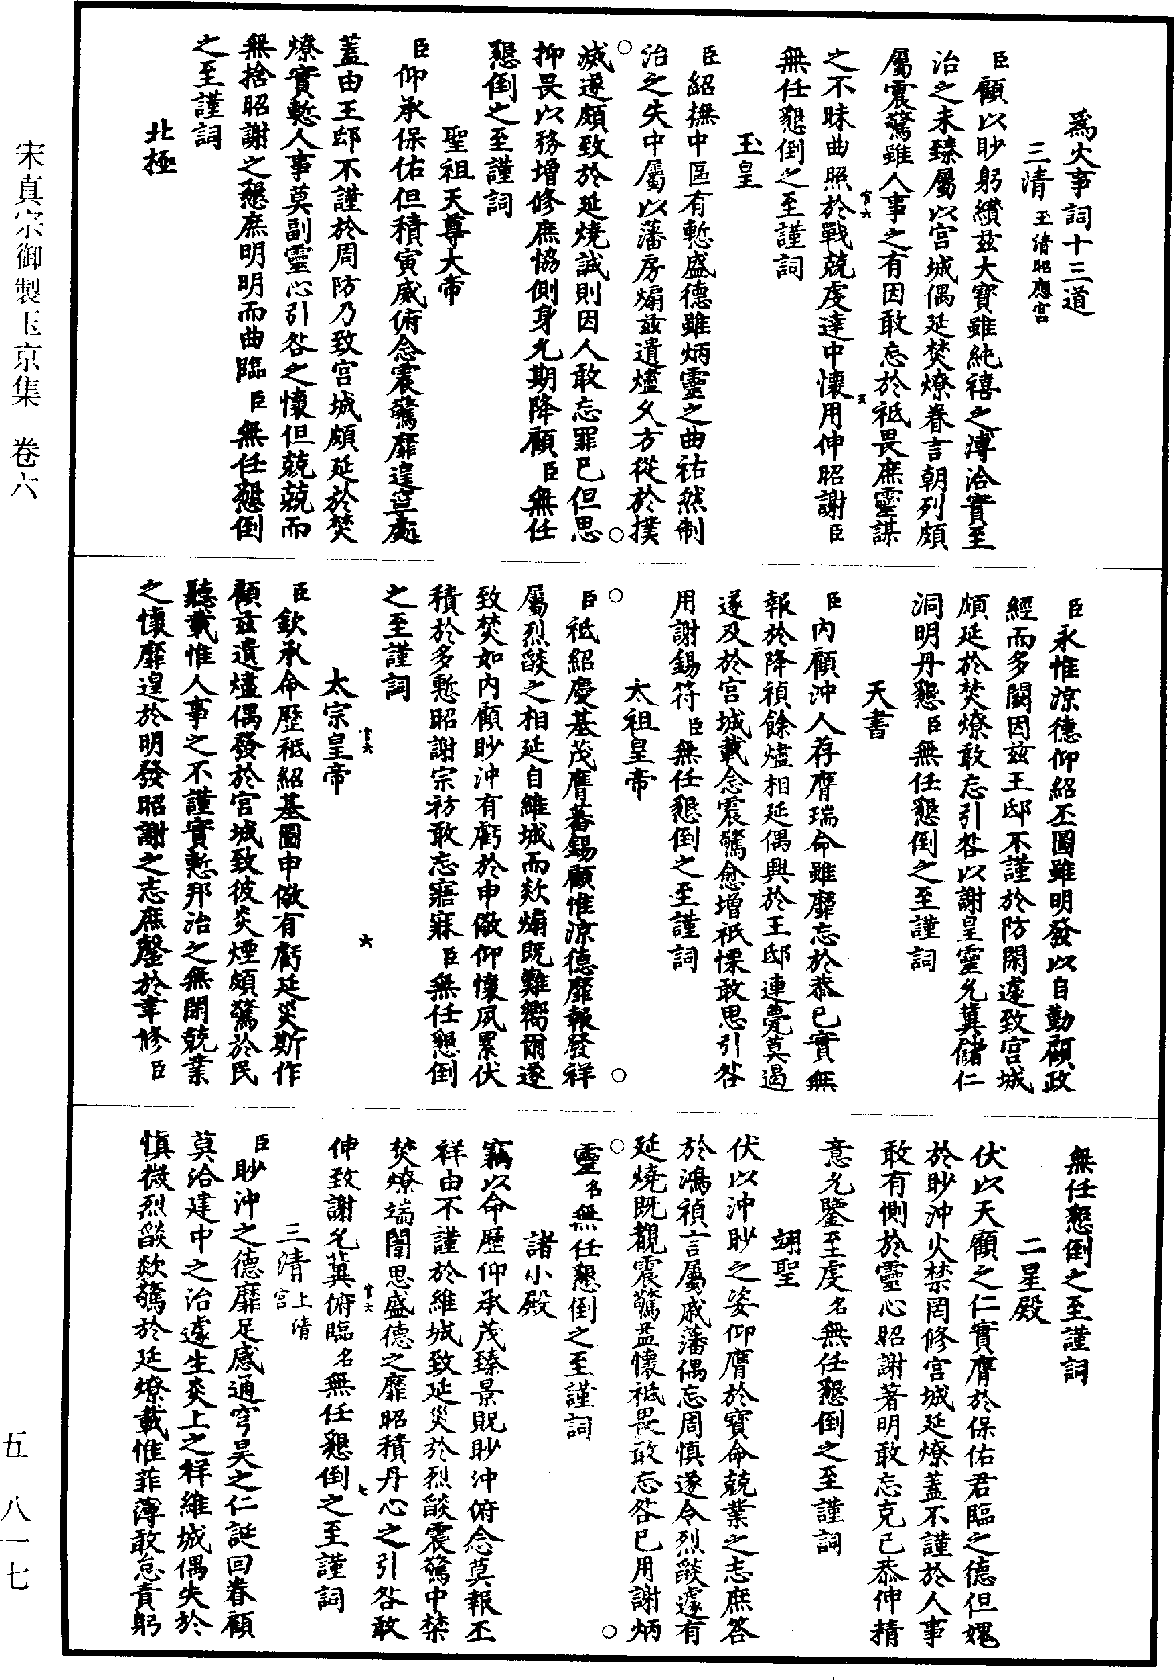 爲火事詞十三道
三清 玉清昭應宮
臣顧以眇躬纘兹大寳雖純禧之溥洽實至
治之未臻屬以宮城偶延焚燎眷言朝列頗
屬震驚雖人事之有因敢忘於祗畏庶靈謀
之不昧曲照於戰兢虔達中懷用伸昭謝臣
無任懇倒之至謹詞
玉皇
臣紹撫中區有慙盛德雖炳靈之曲祐然制
治之失中屬以藩房煽兹遺燼火方從於撲
滅遂頗致於延燒誠則因人敢忘罪已但思
抑畏以務增修庶協側身允期降顧臣無任
懇倒之至謹詞
聖祖天尊大帝
臣仰承保佑但積寅威俯念震驚靡遑寧處
蓋由王邸不謹於周防乃致宮城頗延於焚
燎實慙人事莫副靈心引咎之懷但兢兢而
無捨昭謝之懇庶明明而曲臨臣無任懇倒
之至謹詞
北極
臣永惟涼德仰紹丕圖雖明發以自勤顧政
經而多闕因兹王邸不謹於防閑遽致宮城
頗延於焚燎敢忘引咎以謝皇靈允冀儲仁
洞明丹懇臣無任懇倒之至謹詞
天書
臣內顧沖人存膺瑞命雖靡忘於恭已實無
報於降禎餘燼相延偶興於王邸連甍莫遏
遂及於宮城載念震驚愈增祗慄敢思引咎
用謝錫符臣無任懇倒之至謹詞
太祖皇帝
臣祗紹慶基茂膺蕃錫顧惟涼德靡報發祥
屬烈燄之相延自維城而欻煽既難嚮爾遂
致焚如內顧眇沖有虧於申儆仰懷夙累伏
積於多慙昭謝宗祊敢忘寤寐臣無任懇倒
之至謹詞
太宗皇帝
臣欽承命歷祗紹基圖申儆有虧延災斯作
顧兹遺燼偶發於宮城致彼炎煙頗驚於民
聽載惟人事之不謹實慙邦治之無閑兢業
之懷靡遑於明發昭謝之志庶罄於聿修臣
無任懇倒之至謹詞
二星殿
伏以天顧之仁實膺於保佑君臨之德但媿
於眇沖火禁罔修宮城延燎蓋不謹於人事
敢有惻於靈心昭謝著明敢忘克已恭伸精
意允鑒至虔名無任懇倒之至謹詞
翊聖
伏以沖眇之姿仰膺於寶命兢業之志庶答
於鴻禎言屬戚藩偶忘周慎遂令烈燄遽有
延燒既觀震驚益懷祗畏敢忘咎已用謝炳
靈名無任懇倒之至謹詞
諸小殿
竊以命歷仰承茂臻景貺眇沖俯念莫報丕
祥由不謹於維城致延災於烈燄震驚中禁
焚燎端闈思盛德之靡昭積丹心之引咎敢
伸致謝允冀俯臨名無任懇倒之至謹詞
三清 上清宮
臣眇沖之德靡足感通穹昊之仁誕回眷顧
莫洽建中之治遽生炎上之祥維城偶失於
慎微烈燄欻驚於廷燎載惟菲薄敢怠責躬
宋真宗御製玉京集 卷六
五 八一七